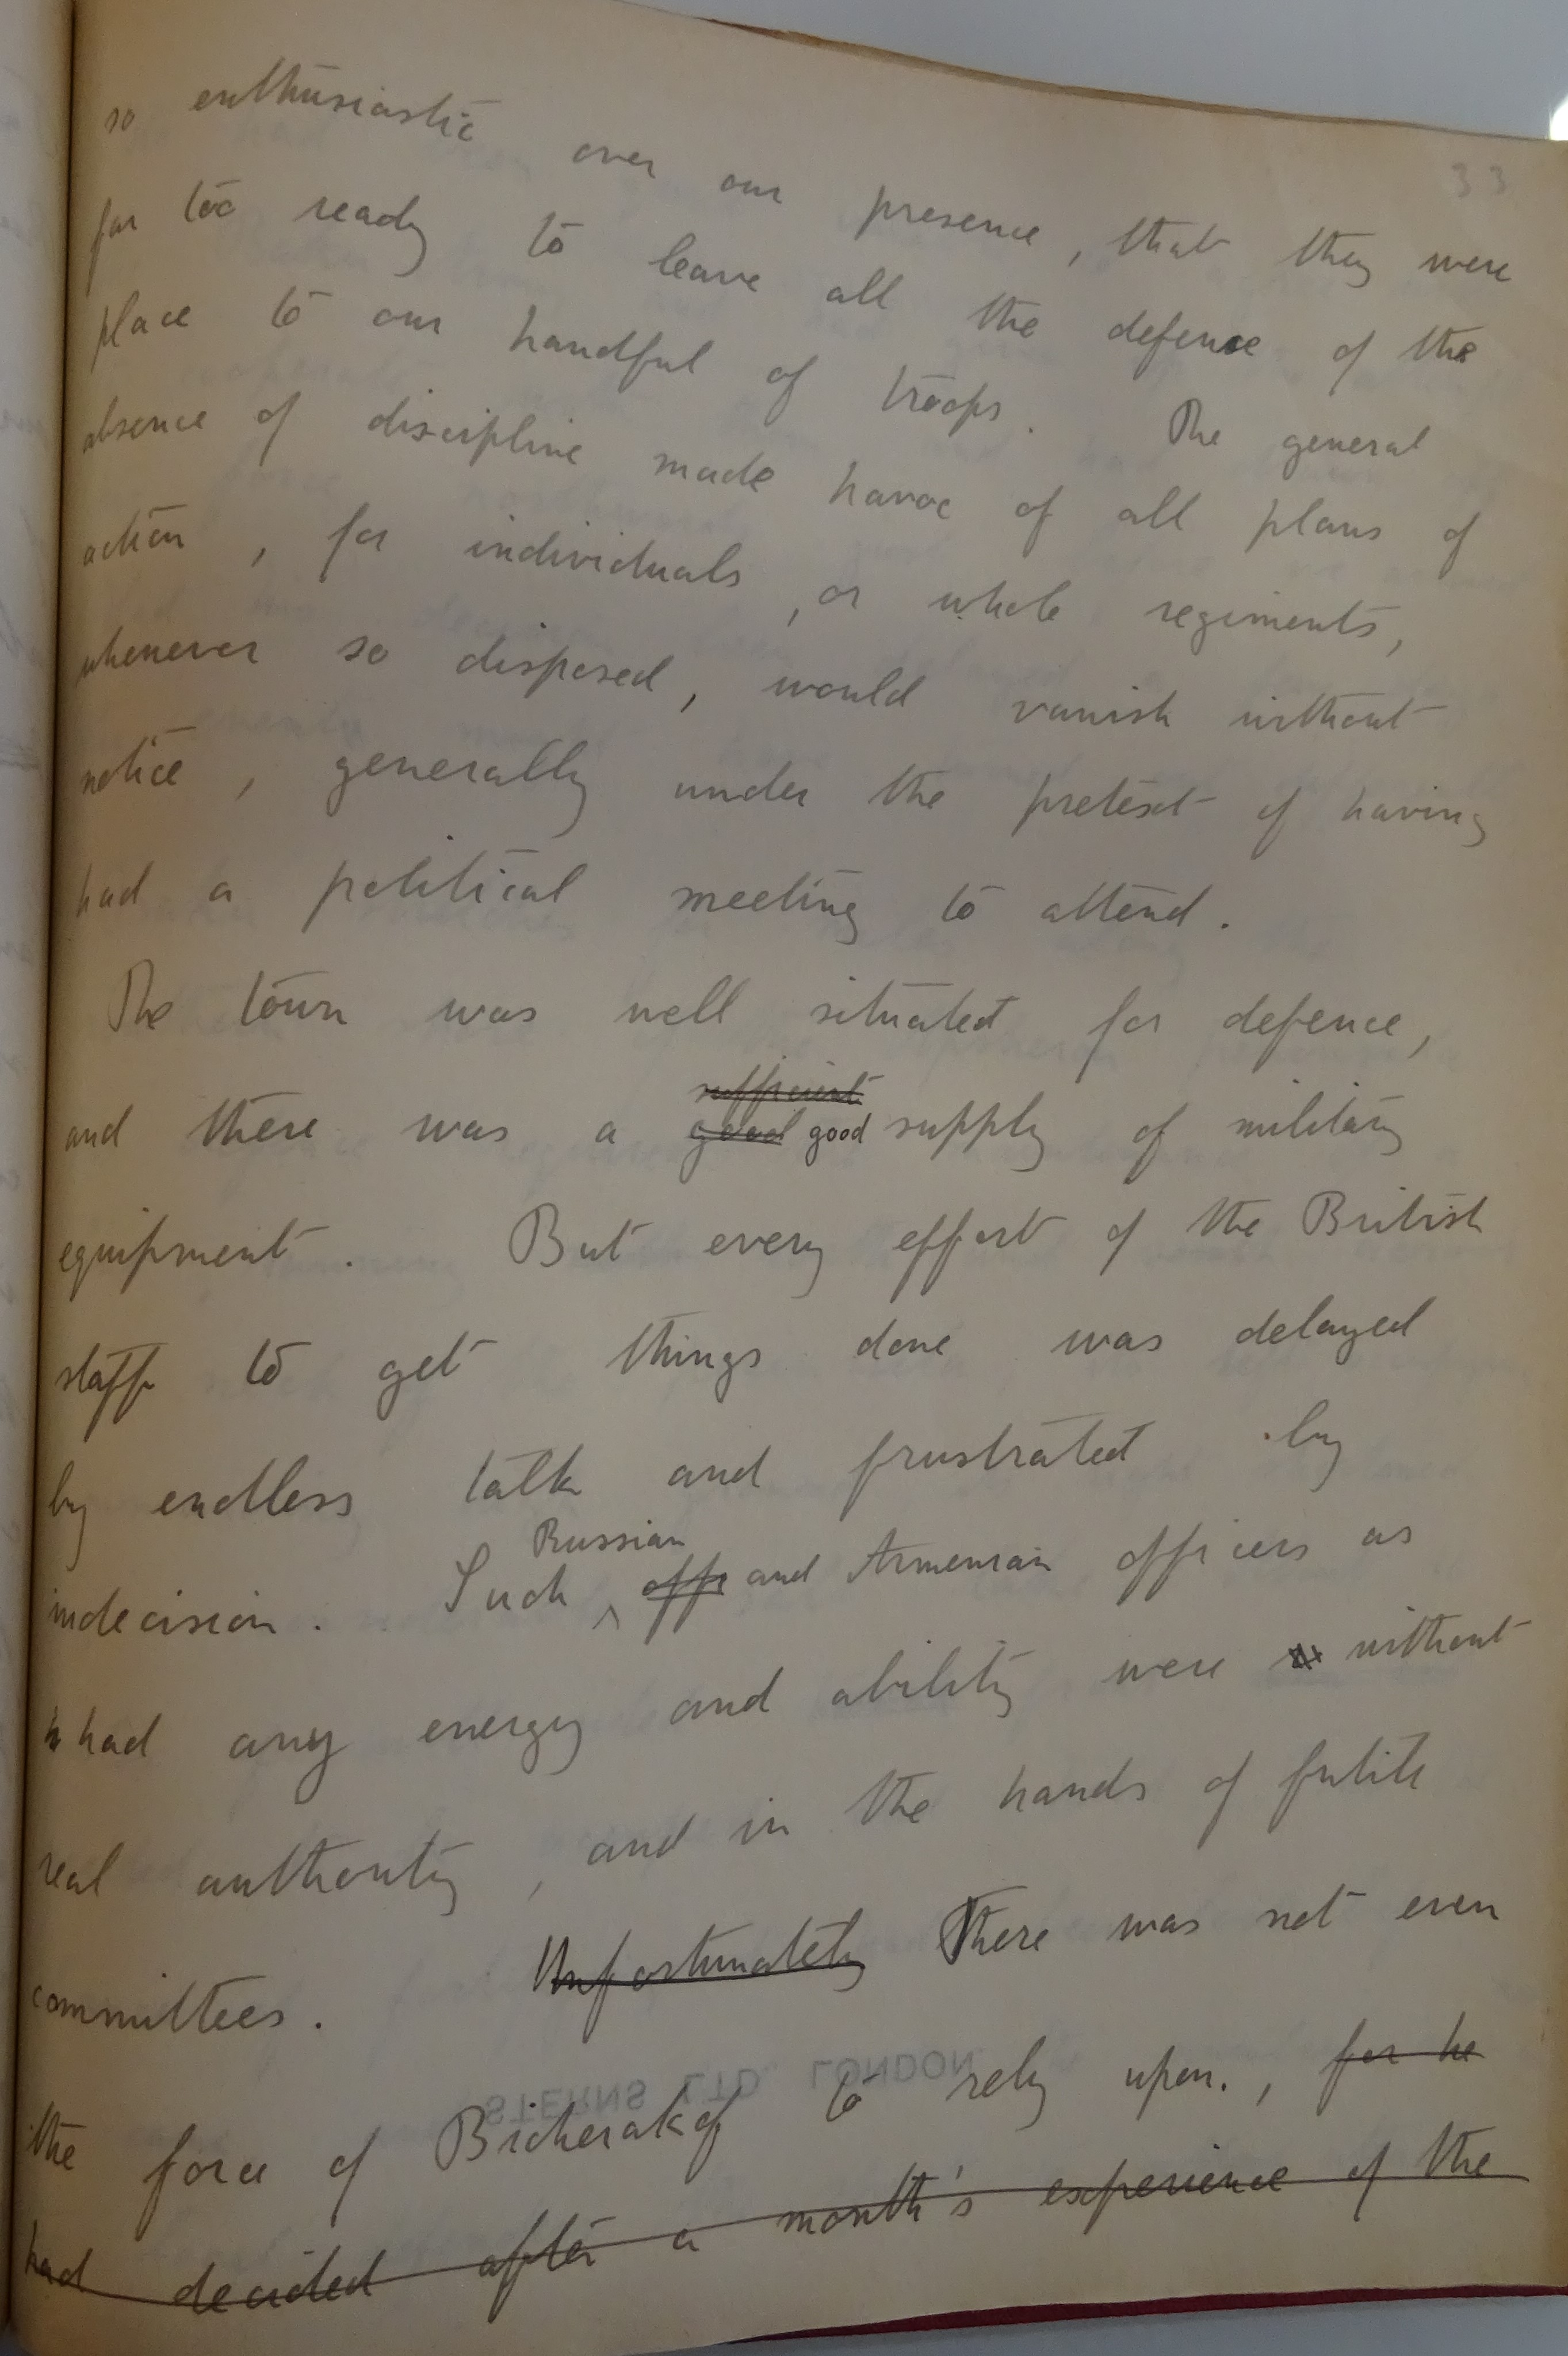 33
so enthusiastic over our presence, that they were
far too ready to leave all the defence of the
place to our handful of troops. The general
absence of discipline made havoc of all plans of
action, for individuals, or whole regiments,
whenever so disposed, would vanish without
notice, generally under the pretext of having
had a political meeting to attend.
The town was well situated for defence,
sufficient
and there was a good good supply of military
equipment. But every effort of the British
staff to get things done was delayed
by endless talk and frustrated by
Russian
indecision. Such ^ offi and Armenian officers as
had any energy and ability were without
real authority, and in the hands of futile
committees. Unfortunately There was not even
the force of Bicherakof to rely upon., for he
had decided after a month's experience of the
STERNS LTD. LONDON